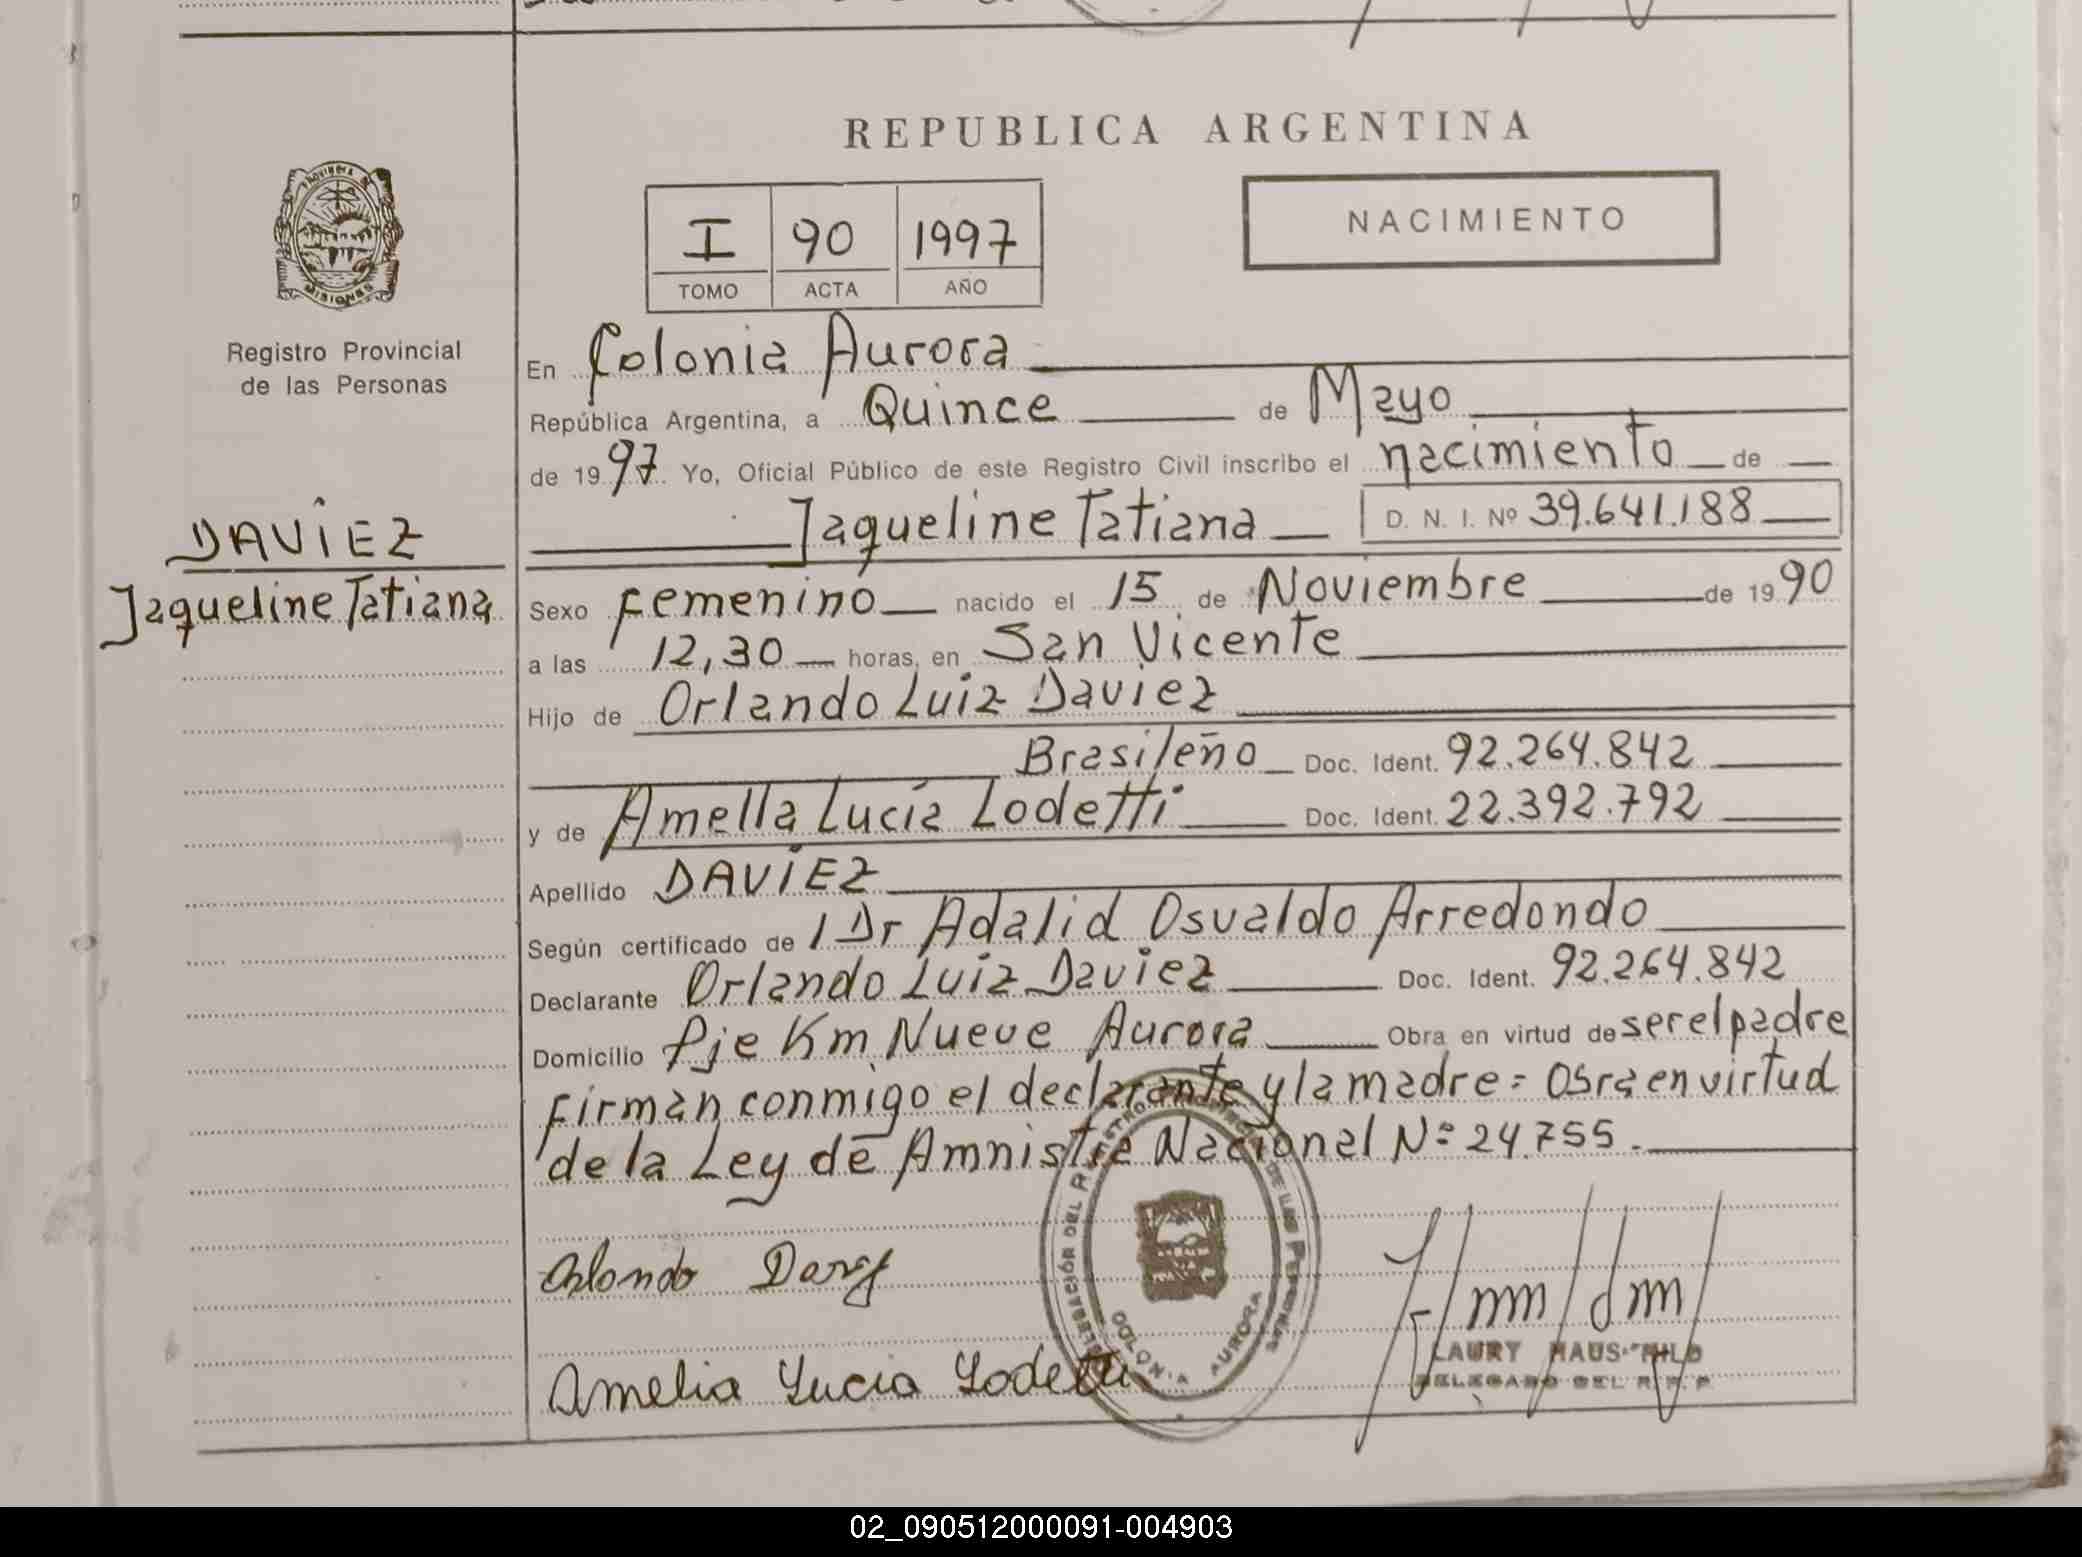 REPUBLICA ARGENTINA
NACIMIENTO
I 90 1997
TOMO ACTA AÑO
PROVINCIA DE
MISIONES
Registro Provincial
de las Personas
DAVIEZ
Jaqueline Tatiana
En Colonia Aurora
República Argentina, a Quince de Mayo
de 1997 Yo, Oficial Público de este Registro Civil inscribo el nacimiento de
Jaqueline Tatiana D. N. I. Nº 39.641.188
Sexo Femenino nacido el 15 de Noviembre de 1990
a las 12,30 horas, en San Vicente
Hijo de Orlando Luiz Daviez
Brasileño Doc. Ident. 92.264.842
y de Amelia Lucía Lodetti Doc. Ident. 22.392.792
Apellido DAVIEZ
Según certificado de / Dr Adalid Osvaldo Arredondo
Declarante Orlando Luiz Daviez Doc. Ident. 92.264.842
Domicilio Pje Km Nueve Aurora Obra en virtud de ser el padre
Firman conmigo el declarante y la madre = Obra en virtud
de la Ley de Amnistia Nacional Nº 24.755.
DELEGACIÓN DEL REGISTRO PROVINCIAL DE LAS PERSONAS
COLONIA AURORA
Orlondo
Amelia Lucia Lodetti
LAURY HAUSTHILD
DELEGADO DEL R. P. P.
02_090512000091-004903